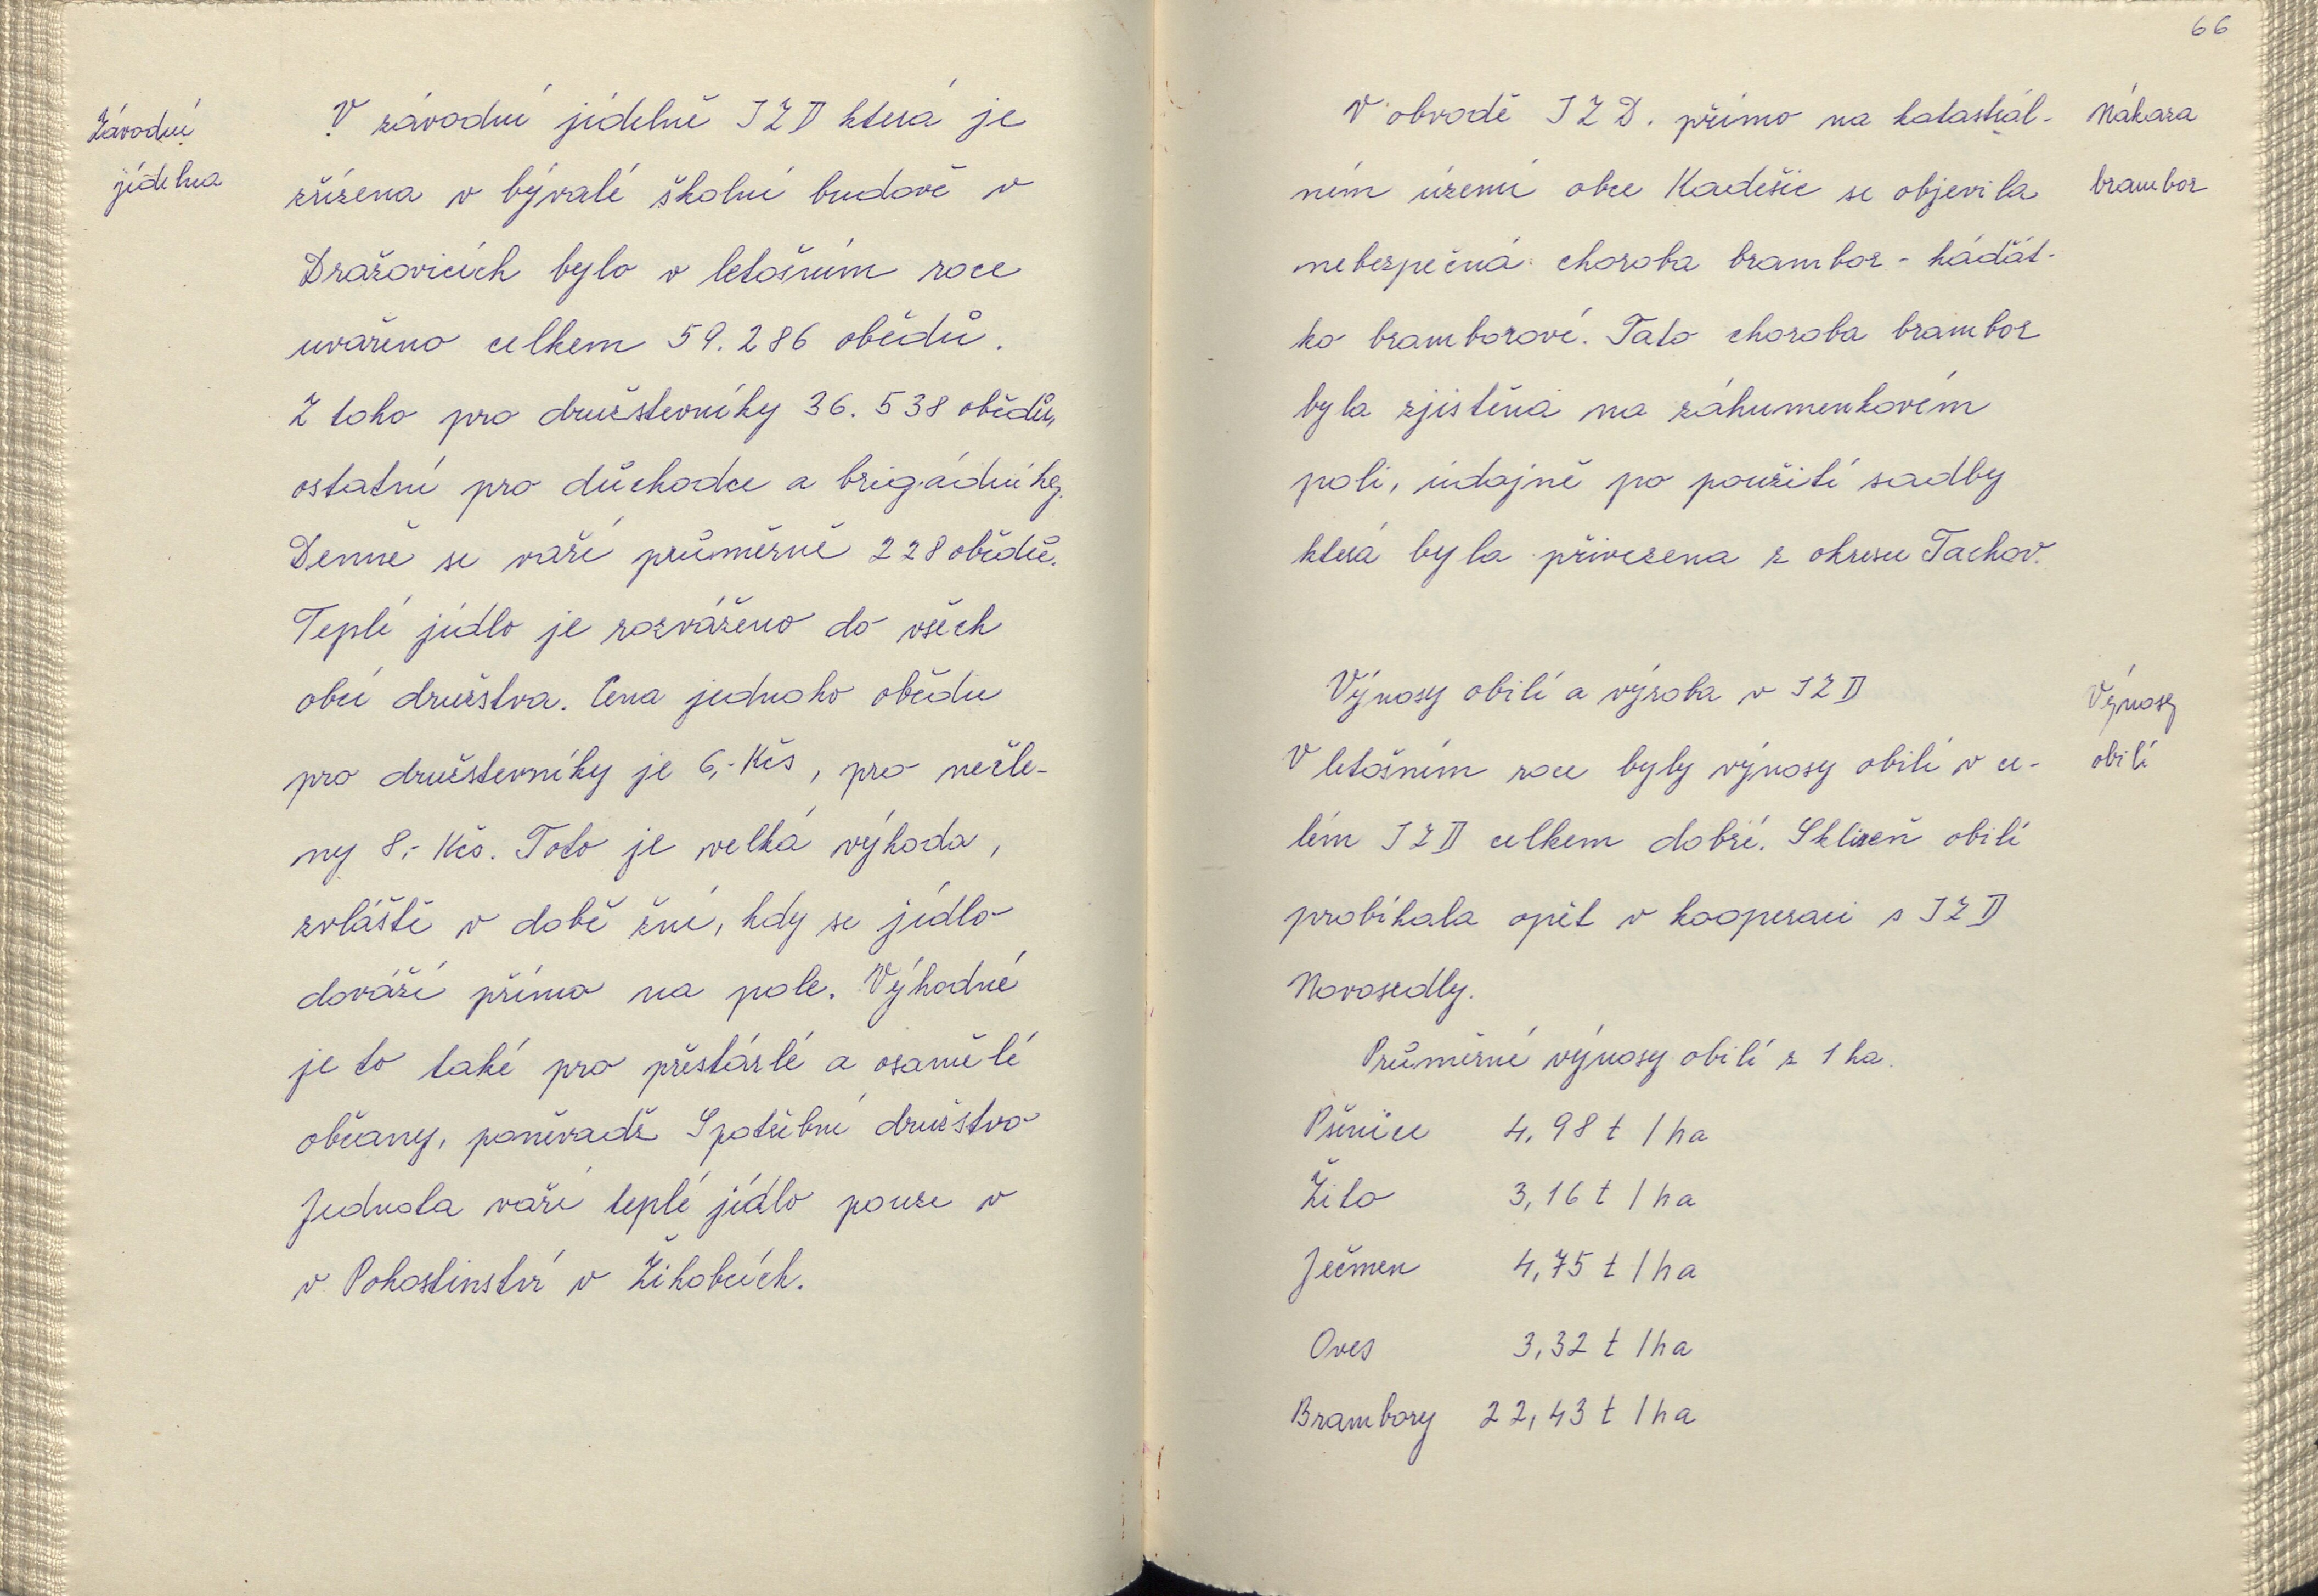 Závodní
jídelna
V závodní jídelně JZD která je
zřízena v bývalé školní budově v
Dražovicích bylo v letošním roce
uvařeno celkem 59.286 obědů.
Z toho pro družstevníky 36.538 obědů,
ostatní pro důchodce a brigádníky.
Denně se vaří průměrně 228 obědů.
Teplé jídlo je rozváženo do všech
obcí družstva. Cena jednoho obědu
pro družstevníky je 6,- Kčs, pro nečle-
ny 8,- Kčs. Toto je velká výhoda,
zvláště v době žní, kdy se jídlo
dováží přímo na pole. Výhodné
je to také pro přestárlé a osamělé
občany, poněvadž Spotřební družstvo
Jednota vaří teplé jídlo pouze v
v Pohostinství v Žihobcích.
66
V obvodě JZD. přímo na katastrál-
ním území obce Kadešic se objevila
nebezpečná choroba brambor - háďát-
ko bramborové. Tato choroba brambor
byla zjištěna na záhumenkovém
poli, údajně po použití sadby
která byla přivezena z okresu Tachov.
Nákaza
brambor
Výnosy obilí a výroba v JZD
V letošním roce byly výnosy obilí v ce-
lém JZD celkem dobré. Sklizeň obilí
probíhala opět v kooperaci s JZD
Novosedly.
Výnosy
obilí
Průměrné výnosy obilí z 1 ha.
Pšenice 4,98 t / ha
Žito 3,16 t / ha
Ječmen 4,75 t / ha
Oves 3,32 t / ha
Brambory 22,43 t / ha